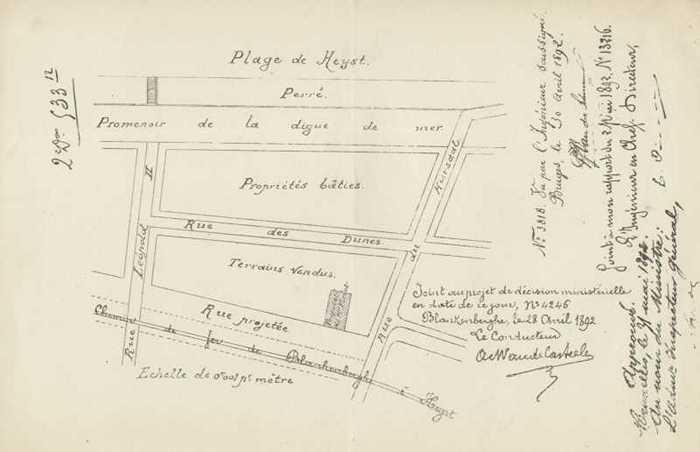 Plage de Heyst.
Perré.
Promenoir de la digue de mer
Propriétés bâties.
Rue des Dunes
Terrains vendus.
Rue projetée
Chemin de fer de Blankenberghe à Heyst
Rue Léopold II
Rue du Kursaal
Echelle de 0,001 pr mètre
Joint au projet de décision ministérielle
en date de ce jour, No 4246
Blankenberghe, le 28 Avril 1892
Le Conducteur
No 3818. Vu par l'Ingénieur soussigné.
Bruges, le 30 Avril 1892.
Joint à mon rapport du 2 Mai 1892. No 13216.
L'Ingénieur en Chef Directeur,
Approuvé.
Bruxelles, le 31 1892.
Au nom du Ministre:
L'adm. Inspecteur Général,
533